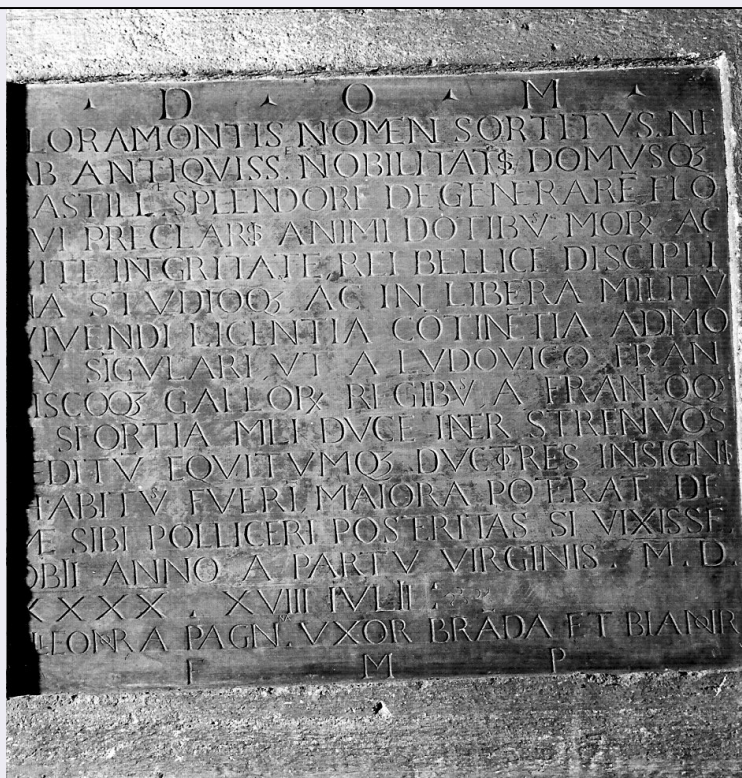 D O M
LORAMONTIS NOMEN SORTITVS. NE
AB ANTIQVISS. NOBILITAT DOMVSQ3
ASTILLE SPLENDORE DEGENERARĒ FLO
VI PRECLAR ANIMI DOTIBV MOR AC
VITE INGRITATE REI BELLICE DISCIPLI
NA STVDIOQ3 AC IN LIBERA MILITV
VIVENDI LICENTIA COTINĒTIA ADMO
V SIGVLARI VT A LVDOVICO FRAN
ISCOQ3 GALLOR REGIBV A FRAN. QQ3
SFORTIA MLI DVCE INER STRENVOS
EDITV EQVITVMQ3 DVCTRES INSIGNI
ABITV FVERI. MAIORA POTERAT DE
VE SIBI POLLICERI POSTERITAS SI VIXISSE.
OBII ANNO A PARTV VIRGINIS. M. D.
XXXX. XVIII IVLII
LEONRA PAGN. VXOR BRADA ET BIANR
F M P